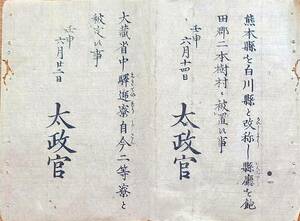 熊本縣を白川縣と改称し縣廳を飽
田郡二本樹村へ被置候事
壬申
六月十四日
太政官
大藏省中驛逓寮自今二等寮と
被定候事
壬申
六月廿二日
太政官